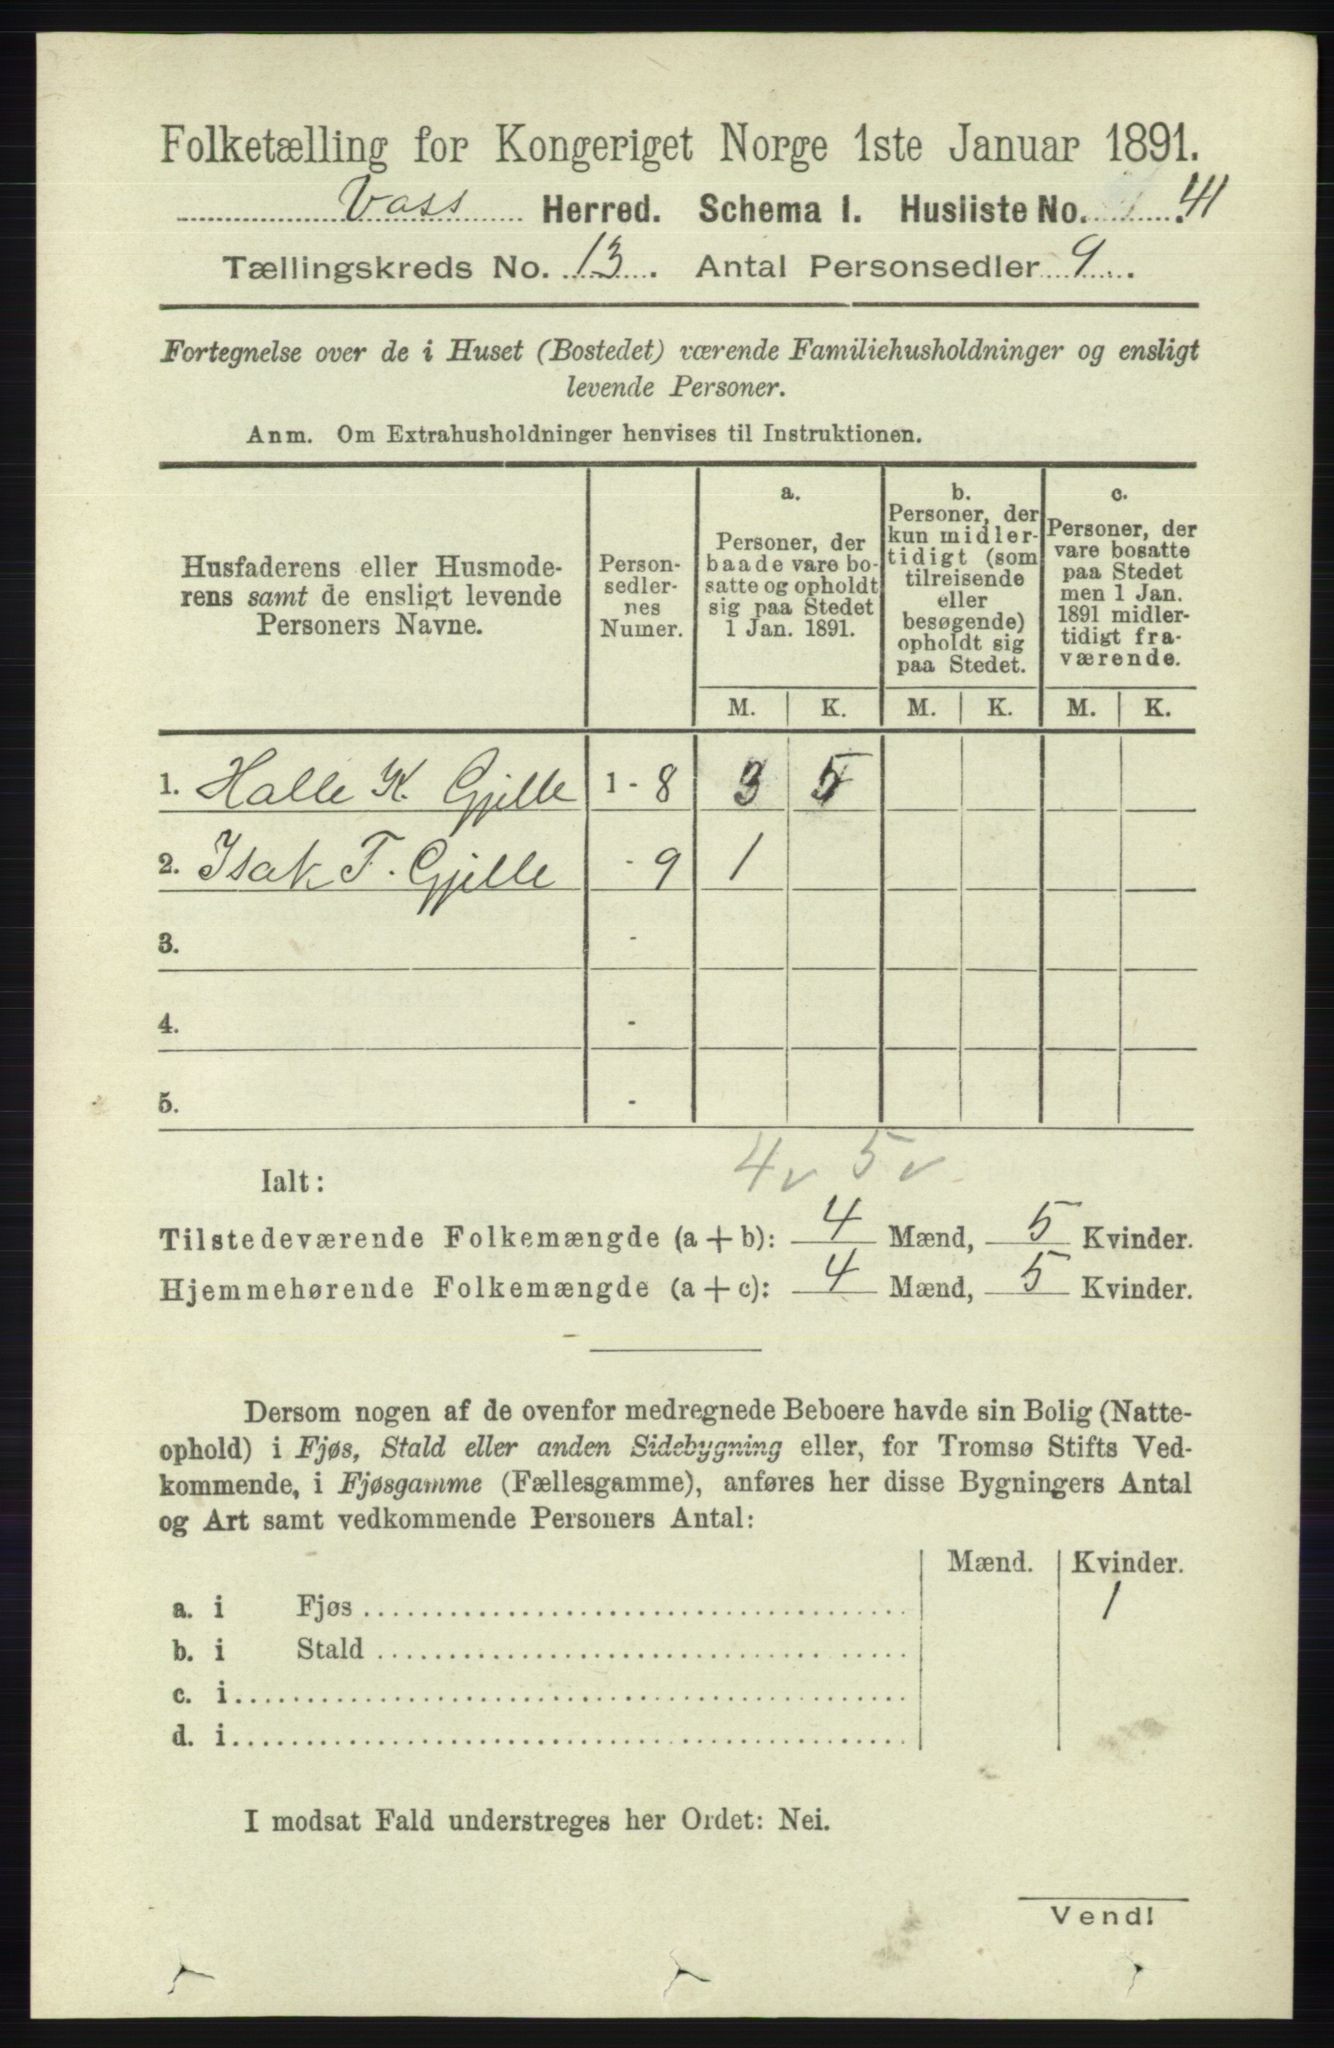 Folketælling for Kongeriget Norge 1ste Januar 1891.
Vass Herred. Schema I. Husliste No. 41
Tællingskreds No. 13. Antal Personsedler 9.
Fortegnelse over de i Huset (Bostedet) værende Familiehusholdninger og ensligt
levende Personer.
Anm. Om Extrahusholdninger henvises til Instruktionen.
Husfaderens eller Husmode-
rens samt de ensligt levende
Personers Navne.
Person-
sedler-
nes
Numer.
a.
Personer, der
baade vare bo-
satte og opholdt
sig paa Stedet
1 Jan. 1891.
b.
Personer, der
kun midler-
tidigt (som
tilreisende
eller
besøgende)
opholdt sig
paa Stedet.
c.
Personer, der
vare bosatte
paa Stedet
men 1 Jan.
1891 midler-
tidigt fra-
værende.
M. K. M. K. M. K.
1. Halle K. Gjelle 1 - 8 3 5
2. Isak T. Gjelle - 9 1
3. -
4. -
5. -
4 v 5 v
Ialt:
Tilstedeværende Folkemængde (a + b): 4 Mænd, 5 Kvinder.
Hjemmehørende Folkemængde (a + c): 4 Mænd, 5 Kvinder.
Dersom nogen af de ovenfor medregnede Beboere havde sin Bolig (Natte-
ophold) i Fjøs, Stald eller anden Sidebygning eller, for Tromsø Stifts Ved-
kommende, i Fjøsgamme (Fællesgamme), anføres her disse Bygningers Antal
og Art samt vedkommende Personers Antal:
Mænd. Kvinder.
a. i Fjøs 1
b. i Stald
c. i
d. i
I modsat Fald understreges her Ordet: Nei.
Vend!